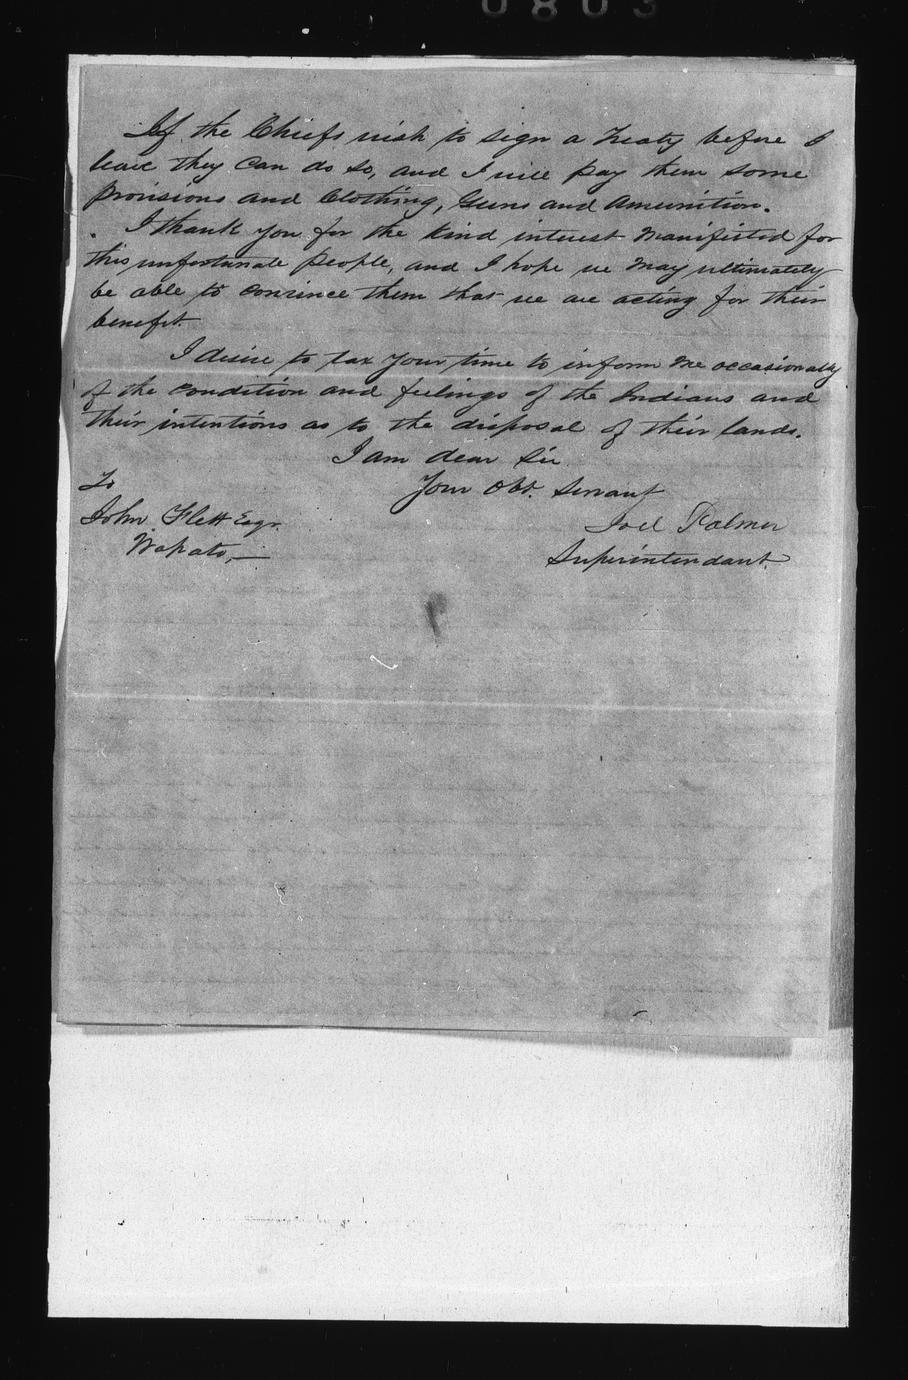 0803
If the Chiefs wish to sign a Treaty before I
leave they can do so, and I will pay them some
provisions and Clothing, Guns and Amunition.
I thank you for the kind interest manifested for
this unfortunate people, and I hope we may ultimately
be able to convince them that we are acting for their
benefit.
I desire to tax your time to inform me occasionally
of the condition and feelings of the Indians and
their intentions as to the disposal of their lands.
I am dear Sir
Your Obt. Servant
Joel Palmer
Superintendant
To
John Flett Esqr.
Wapato,—